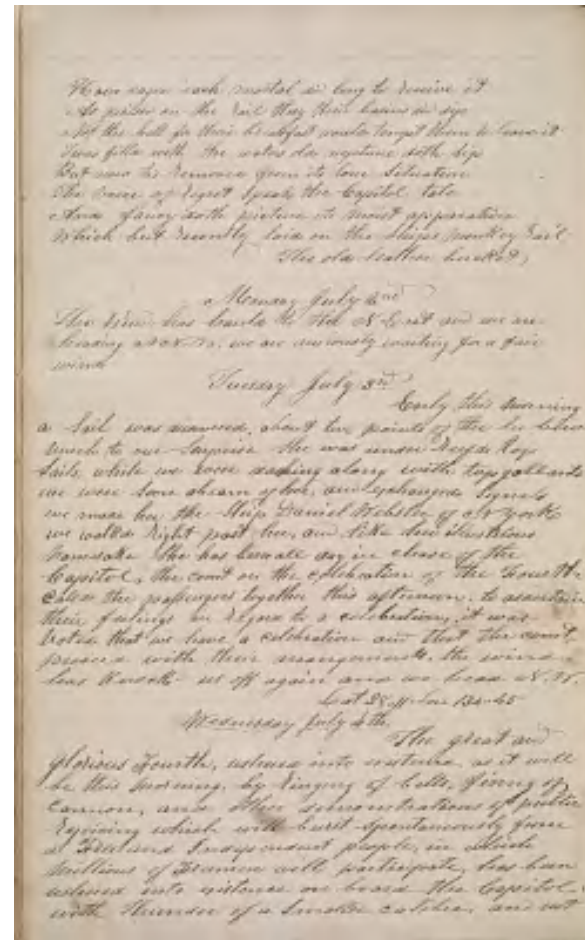 How eager each mortal did long to receive it
As poison on the rail they their basins did sip
Not the bell for their breakfast could tempt them to leave it
Twas filled with the water old neptune doth sip
But now tis removed from its lone situation
The tear of regret speaks the Capitol tale
And fancy doth picture its moist apparition
Which but recently laid on the ships monkey rail
The old leather bucket,
Monday July 2nd
The wind has hauled to the N East and we are
heading NNW, we are anxiously waiting for a fair
wind
Tuesday July 3rd
Early this morning
a sail was discovered, about two points of the lee bow
much to our surprise she was under reefed top
sails while we were dashing along with topgallants
we were soon abeam of her, and exchanged signals
we made her the Ship Daniel Webster of N York
we walked right past her, and like her illustrious
namesake she has the
Capitol, the comt on the celebration of the Fourth
called the passengers together this afternoon, to ascertain
their feelings in regard to a celebration, it was
voted that we have a celebration and that the comt
proceed with their arrangements, the wind
has knocked us off again and we head N.W.
Lat 28.11 Lon 134.45
Wednesday July 4th
The great and
glorious Fourth, ushered into existence as it will
be this morning, by ringing of bells, firing of
cannon, and other demonstrations of public
rejoicing which will burst spontaneously from
a Free and Independent people, in which
millions of Freemen will participate, has been
ushered into existence on board the Capitol
with thunder of a smaller calibre, and not